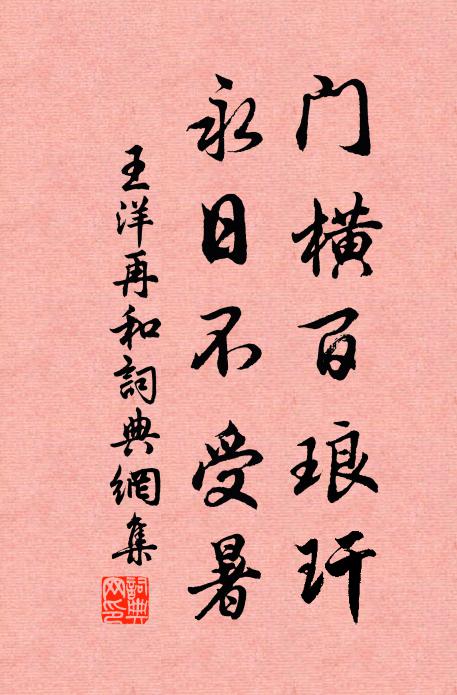 门横百琅玕
永日不受暑
王洋再和詞典網集
詞典網印